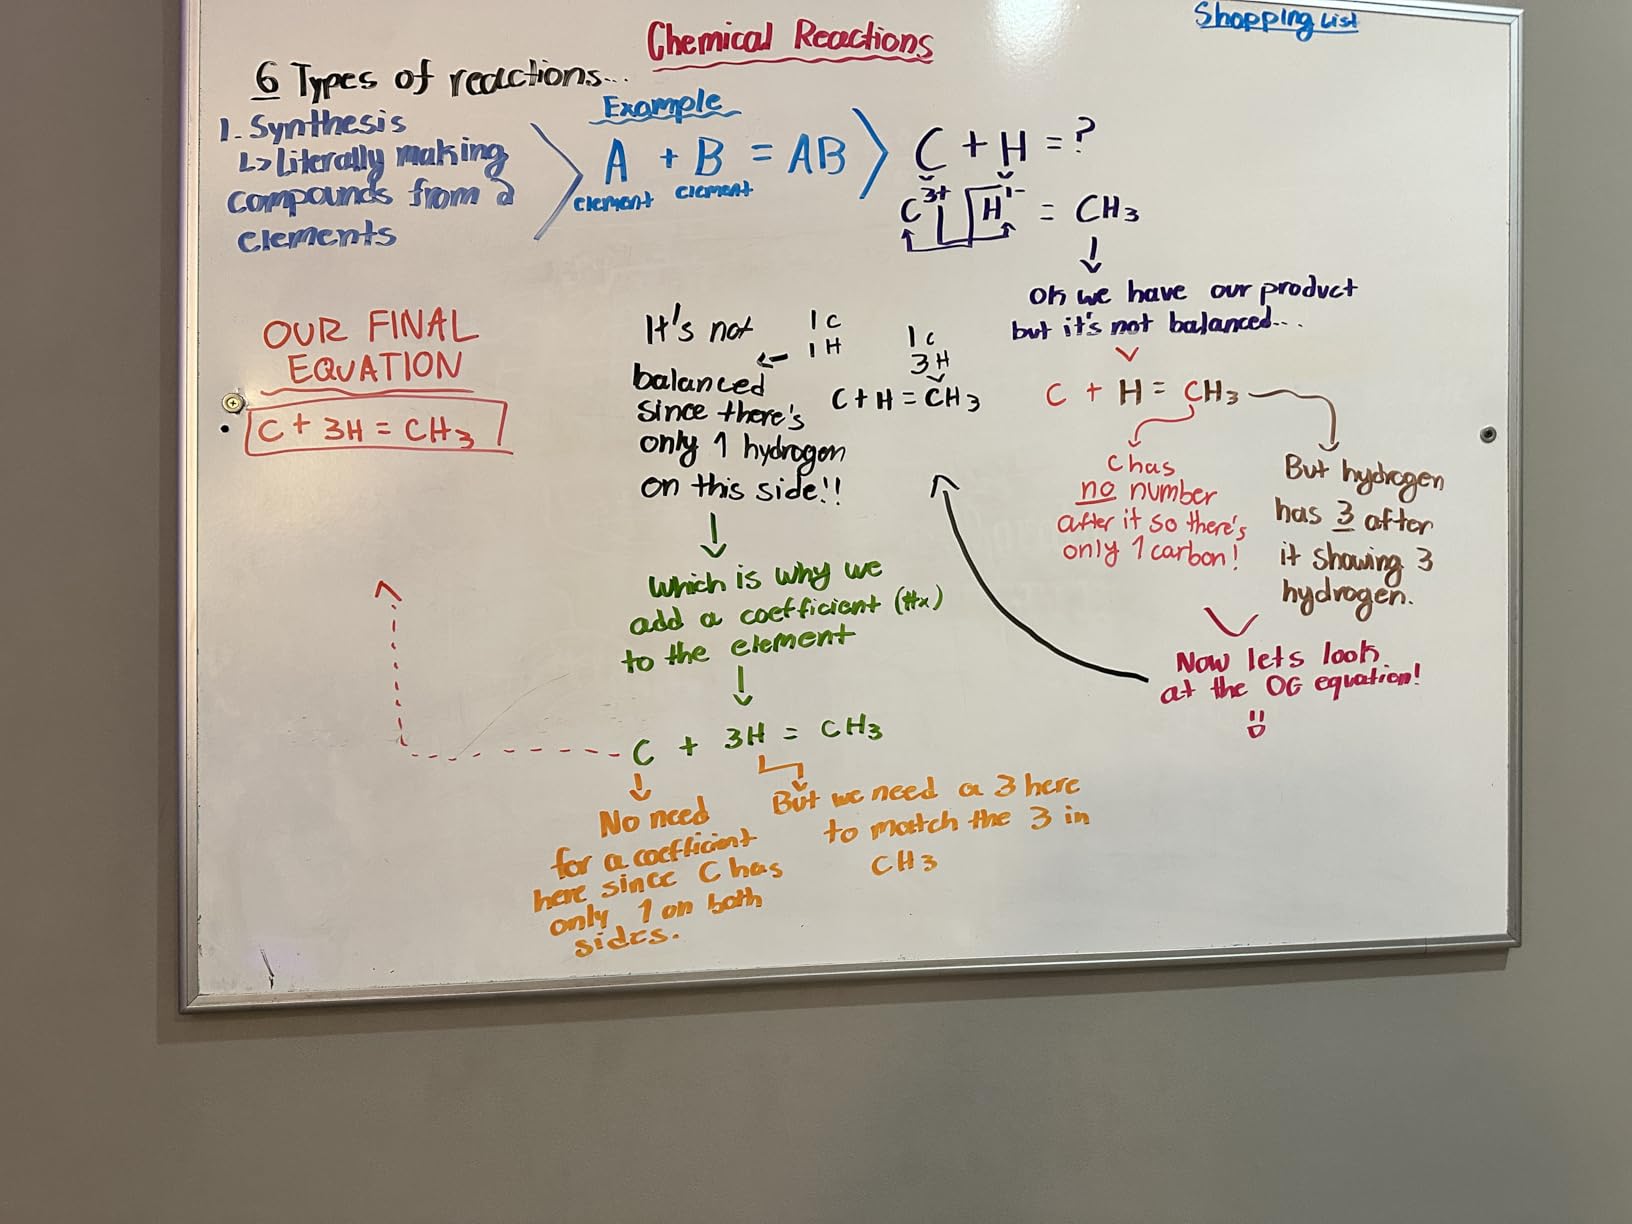 Shopping List
Chemical Reactions
6 Types of reactions...
1. Synthesis
↳ literally making
compounds from 2
elements
Example
A + B = AB
element element
C + H = ?
C³⁺ H¹⁻ = CH₃
Ok we have our product
but it's not balanced...
C + H = CH₃
C has
no number
after it so there's
only 1 carbon!
But hydrogen
has 3 after
it showing 3
hydrogen.
Now lets look
at the OG equation!
1 C
1 H
1 C
3 H
C + H = CH₃
It's not
balanced
since there's
only 1 hydrogen
on this side!!
which is why we
add a coefficient (#x)
to the element
C + 3H = CH₃
No need
for a coefficient
here since C has
only 1 on both
sides.
But we need a 3 here
to match the 3 in
CH₃
OUR FINAL
EQUATION
C + 3H = CH₃